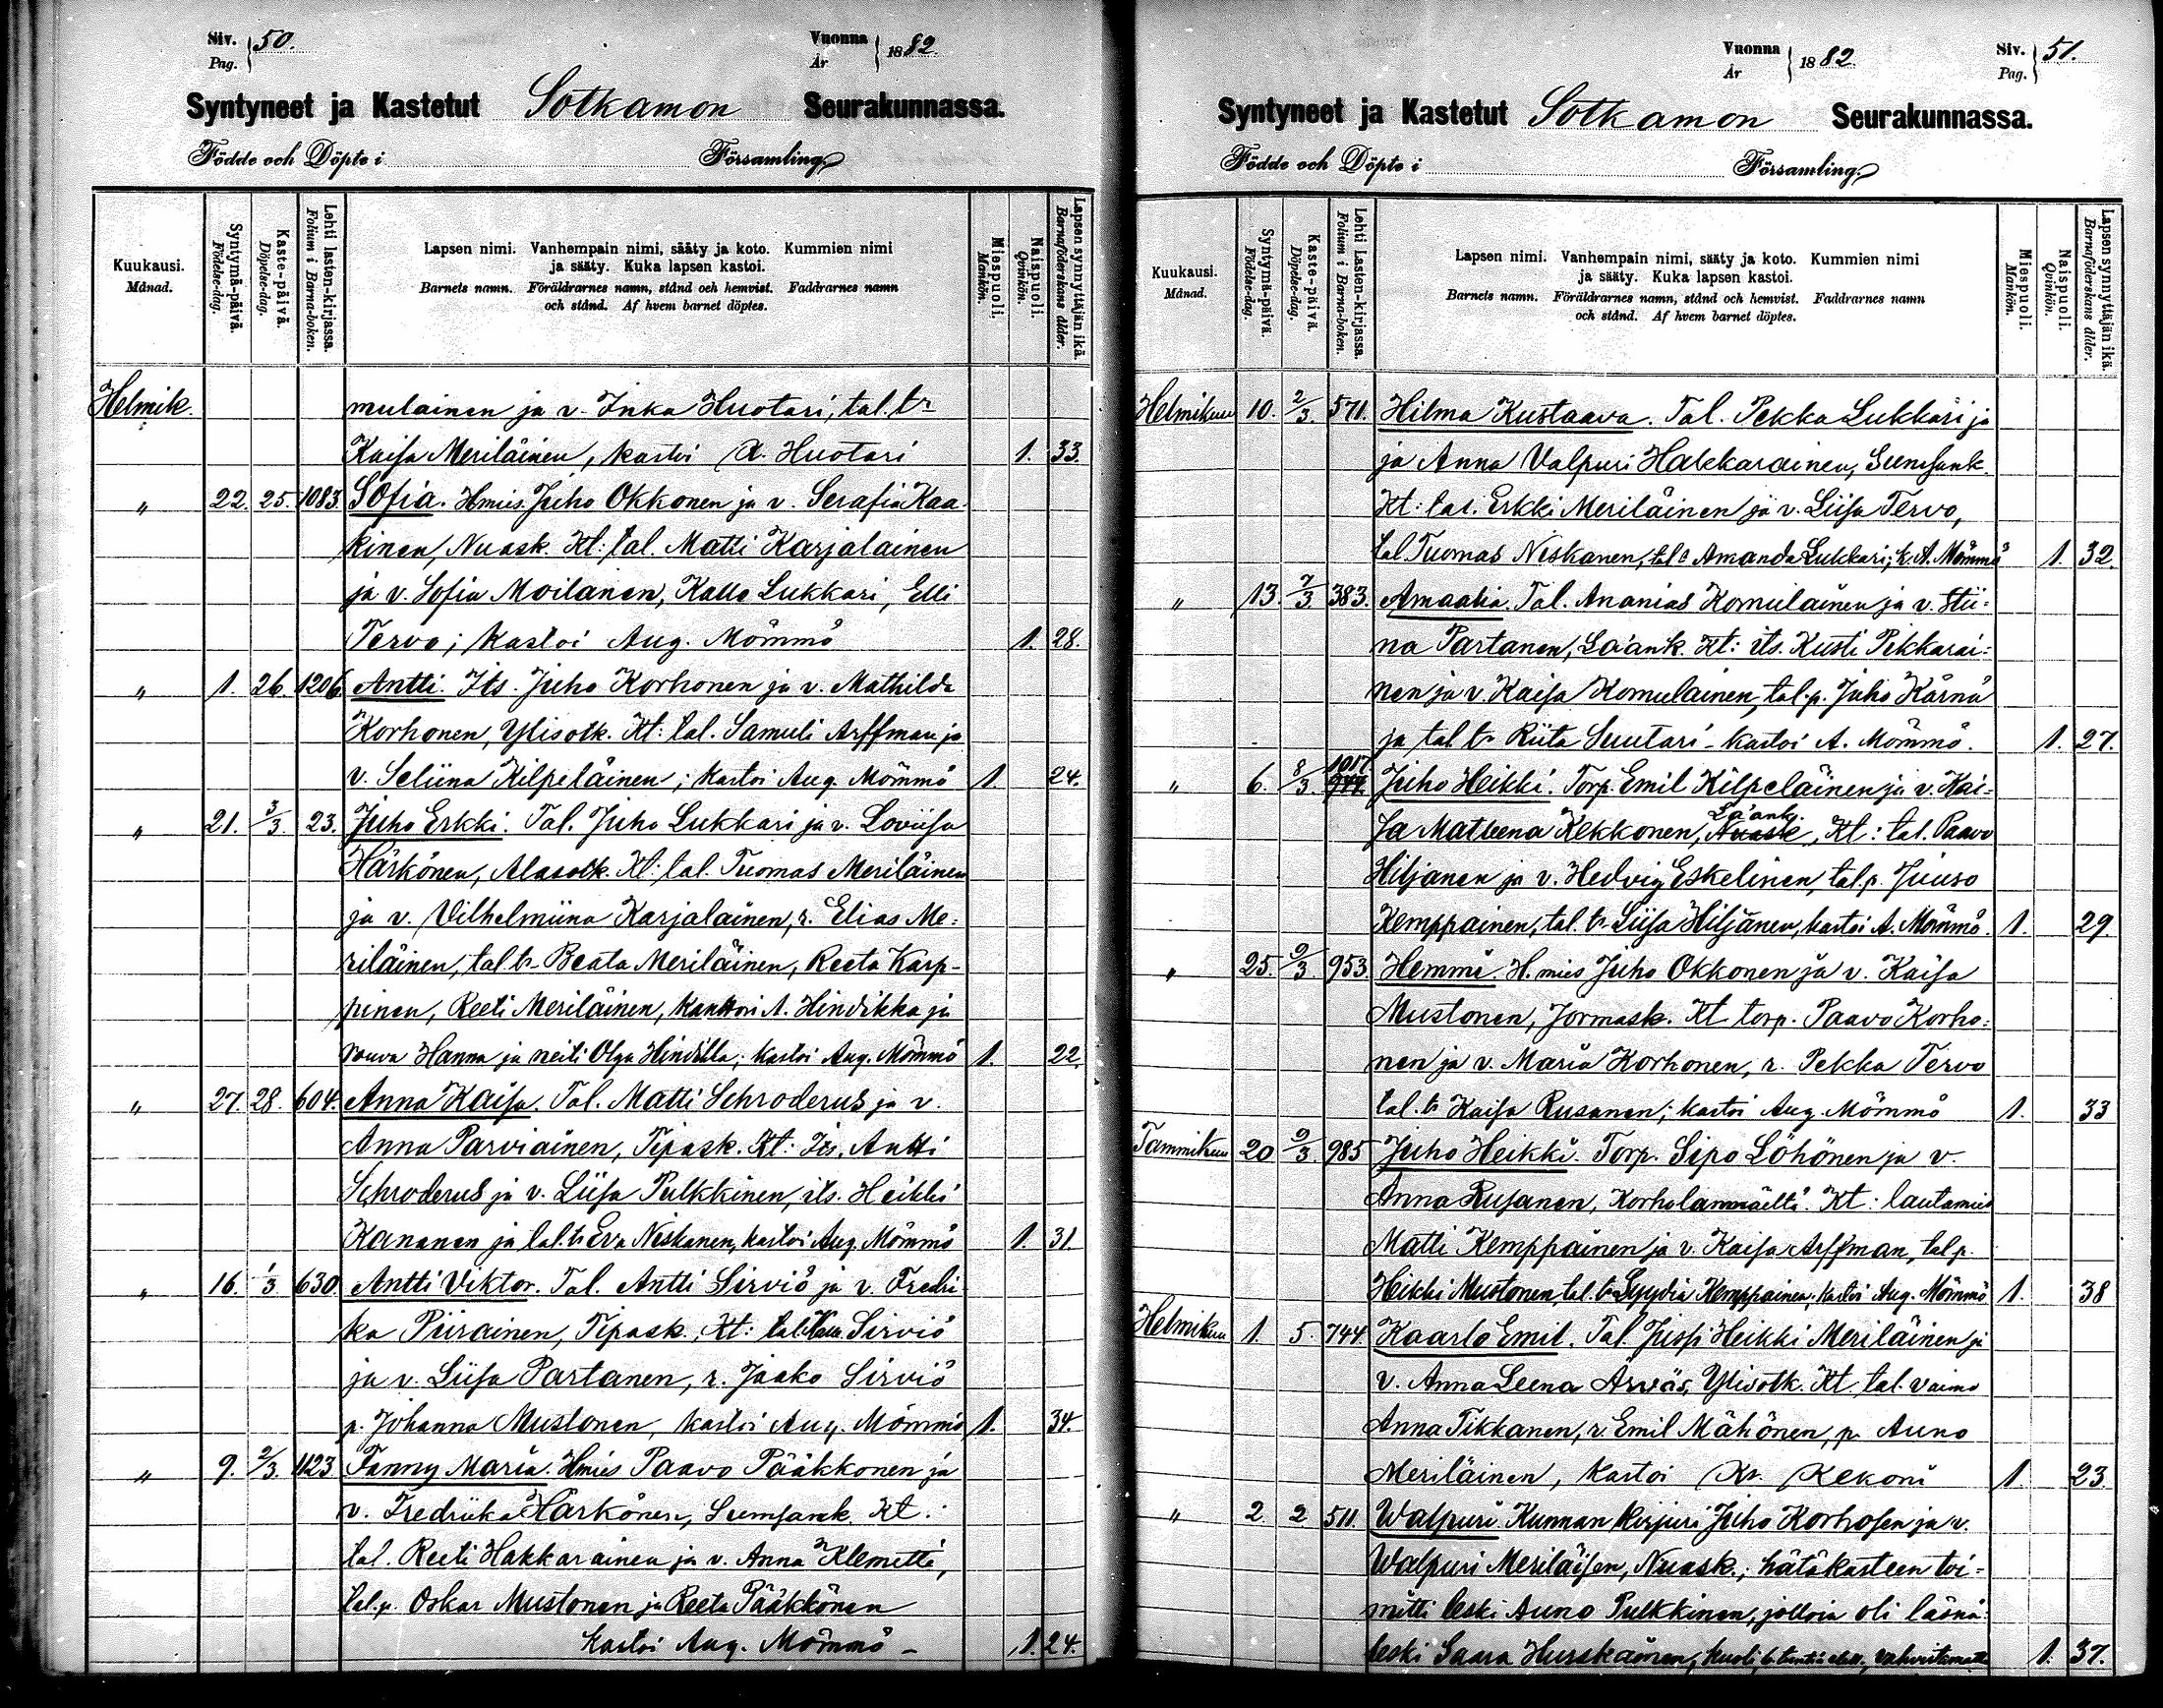 Siv. 50.
Pag.
Vuonna 1882.
År
Syntyneet ja Kastetut Sotkamon Seurakunnassa.
Födde och Döpte i Församling.
Kuukausi.
Månad.
Syntymä-päivä.
Födelse-dag.
Kaste-päivä.
Döpelse-dag.
Lehti lasten-kirjassa.
Folium i Barna-boken.
Lapsen nimi. Vanhempain nimi, sääty ja koto. Kummien nimi
ja sääty. Kuka lapsen kastoi.
Barnets namn. Föräldrarnes namn, stånd och hemvist. Faddrarnes namn
och stånd. Af hvem barnet döptes.
Miespuoli.
Mankön.
Naispuoli.
Qvinkön.
Lapsen synnyttäjän ikä.
Barnaföderskans ålder.
Helmik. mulainen ja v. Inka Huotari, tal. tr
Kaisa Meriläinen, kastoi A. Huotari 1. 33.
" 22. 25. 1083. Sofia. Hmies. Juho Okkonen ja v. Serafia Kaa-
kinen, Nuask. Kt: tal. Matti Karjalainen
ja v. Sofia Moilanen, Kalle Lukkari, Elli
Tervo; kastoi Aug. Mömmö 1. 28.
" 1. 26. 1206. Antti. Its. Juho Korhonen ja v. Mathilda
Korhonen, Ylisotk. Kt: tal. Samuli Arffman ja
v. Seliina Kilpeläinen; kastoi Aug. Mömmö 1. 24.
" 21. 3/3. 23. Juho Erkki. Tal. Juho Lukkari ja v. Loviisa
Härkönen, Alasotk. Kt: tal. Tuomas Meriläinen
ja v. Vilhelmiina Karjalainen, r. Elias Me-
riläinen, tal. tr Beata Meriläinen, Reeta Karp-
pinen, Reeti Meriläinen, kanttori A. Hindikka ja
rouva Hanna ja neiti Olga Hindikka; kastoi Aug. Mömmö 1. 22.
" 27. 28. 604. Anna Kaisa. Tal. Matti Schroderus ja v.
Anna Parviainen, Tipask. Kt: Its. Antti
Schroderus ja v. Liisa Pulkkinen, its. Heikki
Kananen ja tal. tr Eva Niskanen, kastoi Aug. Mömmö 1. 31.
" 16. 1/3. 630. Antti Viktor. Tal. Antti Sirviö ja v. Fredri-
ka Piirainen, Tipask. Kt: tal. Kalle Sirviö
ja v. Liisa Partanen, r. Jaako Sirviö
p. Johanna Mustonen, kastoi Aug. Mömmö 1. 34.
" 9. 2/3. 1123. Fanny Maria. Hmies Paavo Pääkkonen ja
v. Fredriika Härkönen, Sumsank. Kt:
tal. Reeti Hakkarainen ja v. Anna Klemetti,
tal. p. Oskar Mustonen ja Reeta Pääkkönen
kastoi Aug. Mömmö – 1. 24.
Vuonna 1882.
År
Siv. 51.
Pag.
Syntyneet ja Kastetut Sotkamon Seurakunnassa.
Födde och Döpte i Församling.
Kuukausi.
Månad.
Syntymä-päivä.
Födelse-dag.
Kaste-päivä.
Döpelse-dag.
Lehti Lasten-kirjassa.
Folium i Barna-boken.
Lapsen nimi. Vanhempain nimi, sääty ja koto. Kummien nimi
ja sääty. Kuka lapsen kastoi.
Barnets namn. Föräldrarnes namn, stånd och hemvist. Faddrarnes namn
och stånd. Af hvem barnet döptes.
Miespuoli.
Mankön.
Naispuoli.
Qvinkön.
Lapsen synnyttäjän ikä.
Barnaföderskans ålder.
Helmikuu 10. 2/3. 571. Hilma Kustaava. Tal. Pekka Lukkari ja
ja Anna Valpuri Hakkarainen, Sumsank.
Kt: tal. Erkki Meriläinen ja v. Liisa Tervo,
tal Tuomas Niskanen, tal. tr Amanda Lukkari; k. A. Mömmö 1. 32.
" 13. 7/3. 383. Amaalia. Tal. Ananias Komulainen ja v. Stii-
na Partanen, Laank. Kt: its. Kusti Pikkarai-
nen ja v. Kaisa Komulainen, tal. p. Juho Kärnä
ja tal. tr Riita Suutari – kastoi A. Mömmö. 1. 27.
" 6. 8/3. 1017. Juho Heikki. Torp. Emil Kilpeläinen ja v. Kai-
sa Matleena Kekkonen, Laank. Kt: tal. Paavo
Hiljanen ja v. Hedvig Eskelinen, tal. p. Juuso
Kemppainen, tal. tr Liisa Hiljanen, kastoi A. Mömmö. 1. 29.
" 25. 9/3. 953. Hemmi. H. mies Juho Okkonen ja v. Kaisa
Mustonen, Jormask. Kt torp. Paavo Korho-
nen ja v. Maria Korhonen, r. Pekka Tervo
tal. tr Kaisa Rusanen; kastoi Aug. Mömmö 1. 33
Tammikuu 20 9/3. 985 Juho Heikki. Torp. Sipo Löhönen ja v.
Anna Rusanen, Korholanmäeltä. Kt: lautamies
Matti Kemppainen ja v. Kaisa Arffman, tal p.
Heikki Mustonen, tal. tr Lyydia Kemppainen; kastoi Aug. Mömmö 1. 38
Helmikuu 1. 5. 744. Kaarlo Emil. Tal. Jussi Heikki Meriläinen ja
v. Anna Leena Ärväs, Ylisotk. Kt. tal. vaimo
Anna Tikkanen, r. Emil Mähönen, p. Auno
Meriläinen, kastoi Kr. Kekoni 1. 23.
" 2. 2 511. Walpuri Kunnan kirjuri Juho Korhosen ja v.
Walpuri Meriläisen, Nuask.; hätäkasteen toi-
mitti leski Auno Pulkkinen, jolloin oli läsnä
leski Saara Hurskainen, kuoli vahvistamatta 1. 37.